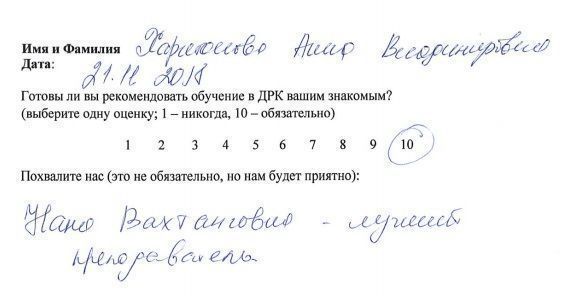 Имя и Фамилия Харитонова Анна Владимировна
Дата:
21.11.2018
Готовы ли вы рекомендовать обучение в ДРК вашим знакомым?
(выберите одну оценку; 1 – никогда, 10 – обязательно)
1 2 3 4 5 6 7 8 9 10
Похвалите нас (это не обязательно, но нам будет приятно):
Нана Вахтанговна - лучший
преподаватель